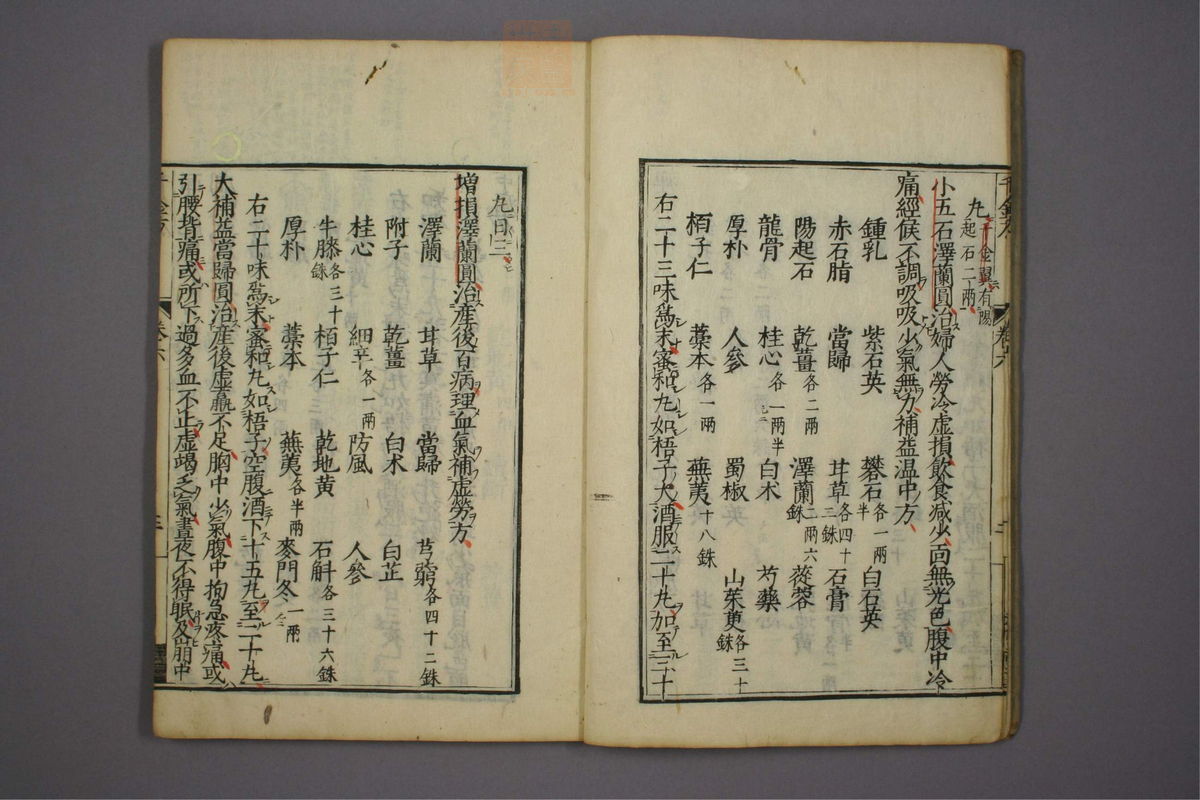 丸千金翼有陽起石二兩
小五石澤蘭圓治婦人勞冷虛損飲食減少面無光色腹中冷
痛經候不調吸吸少氣無力補益溫中方
鍾乳 紫石英 礬石各一兩半 白石英
赤石脂 當歸 甘草各四十二銖 石膏
陽起石 乾薑各二兩 澤蘭二兩六銖 蓯蓉
龍骨 桂心各一兩半 白朮 芍藥
厚朴 人參 蜀椒 山茱萸各三十銖
栢子仁 藁本各一兩 蕪荑十八銖
右二十三味爲末蜜和丸如梧子大酒服二十丸加至三十
丸日三
增損澤蘭圓治産後百病理血氣補虛勞方
澤蘭 甘草 當歸 芎藭各四十二銖
附子 乾薑 白朮 白芷
桂心 細辛各一兩 防風 人參
牛膝各三十銖 栢子仁 乾地黄 石斛各三十六銖
厚朴 藁本 蕪荑各半兩 麥門冬一兩
右二十味爲末蜜和丸如梧子空腹酒下十五丸至二十丸
大補益當歸圓治産後虛羸不足胸中少氣腹中拘急疼痛或
引腰背痛或所下過多血不止虛竭乏氣晝夜不得眠及崩中